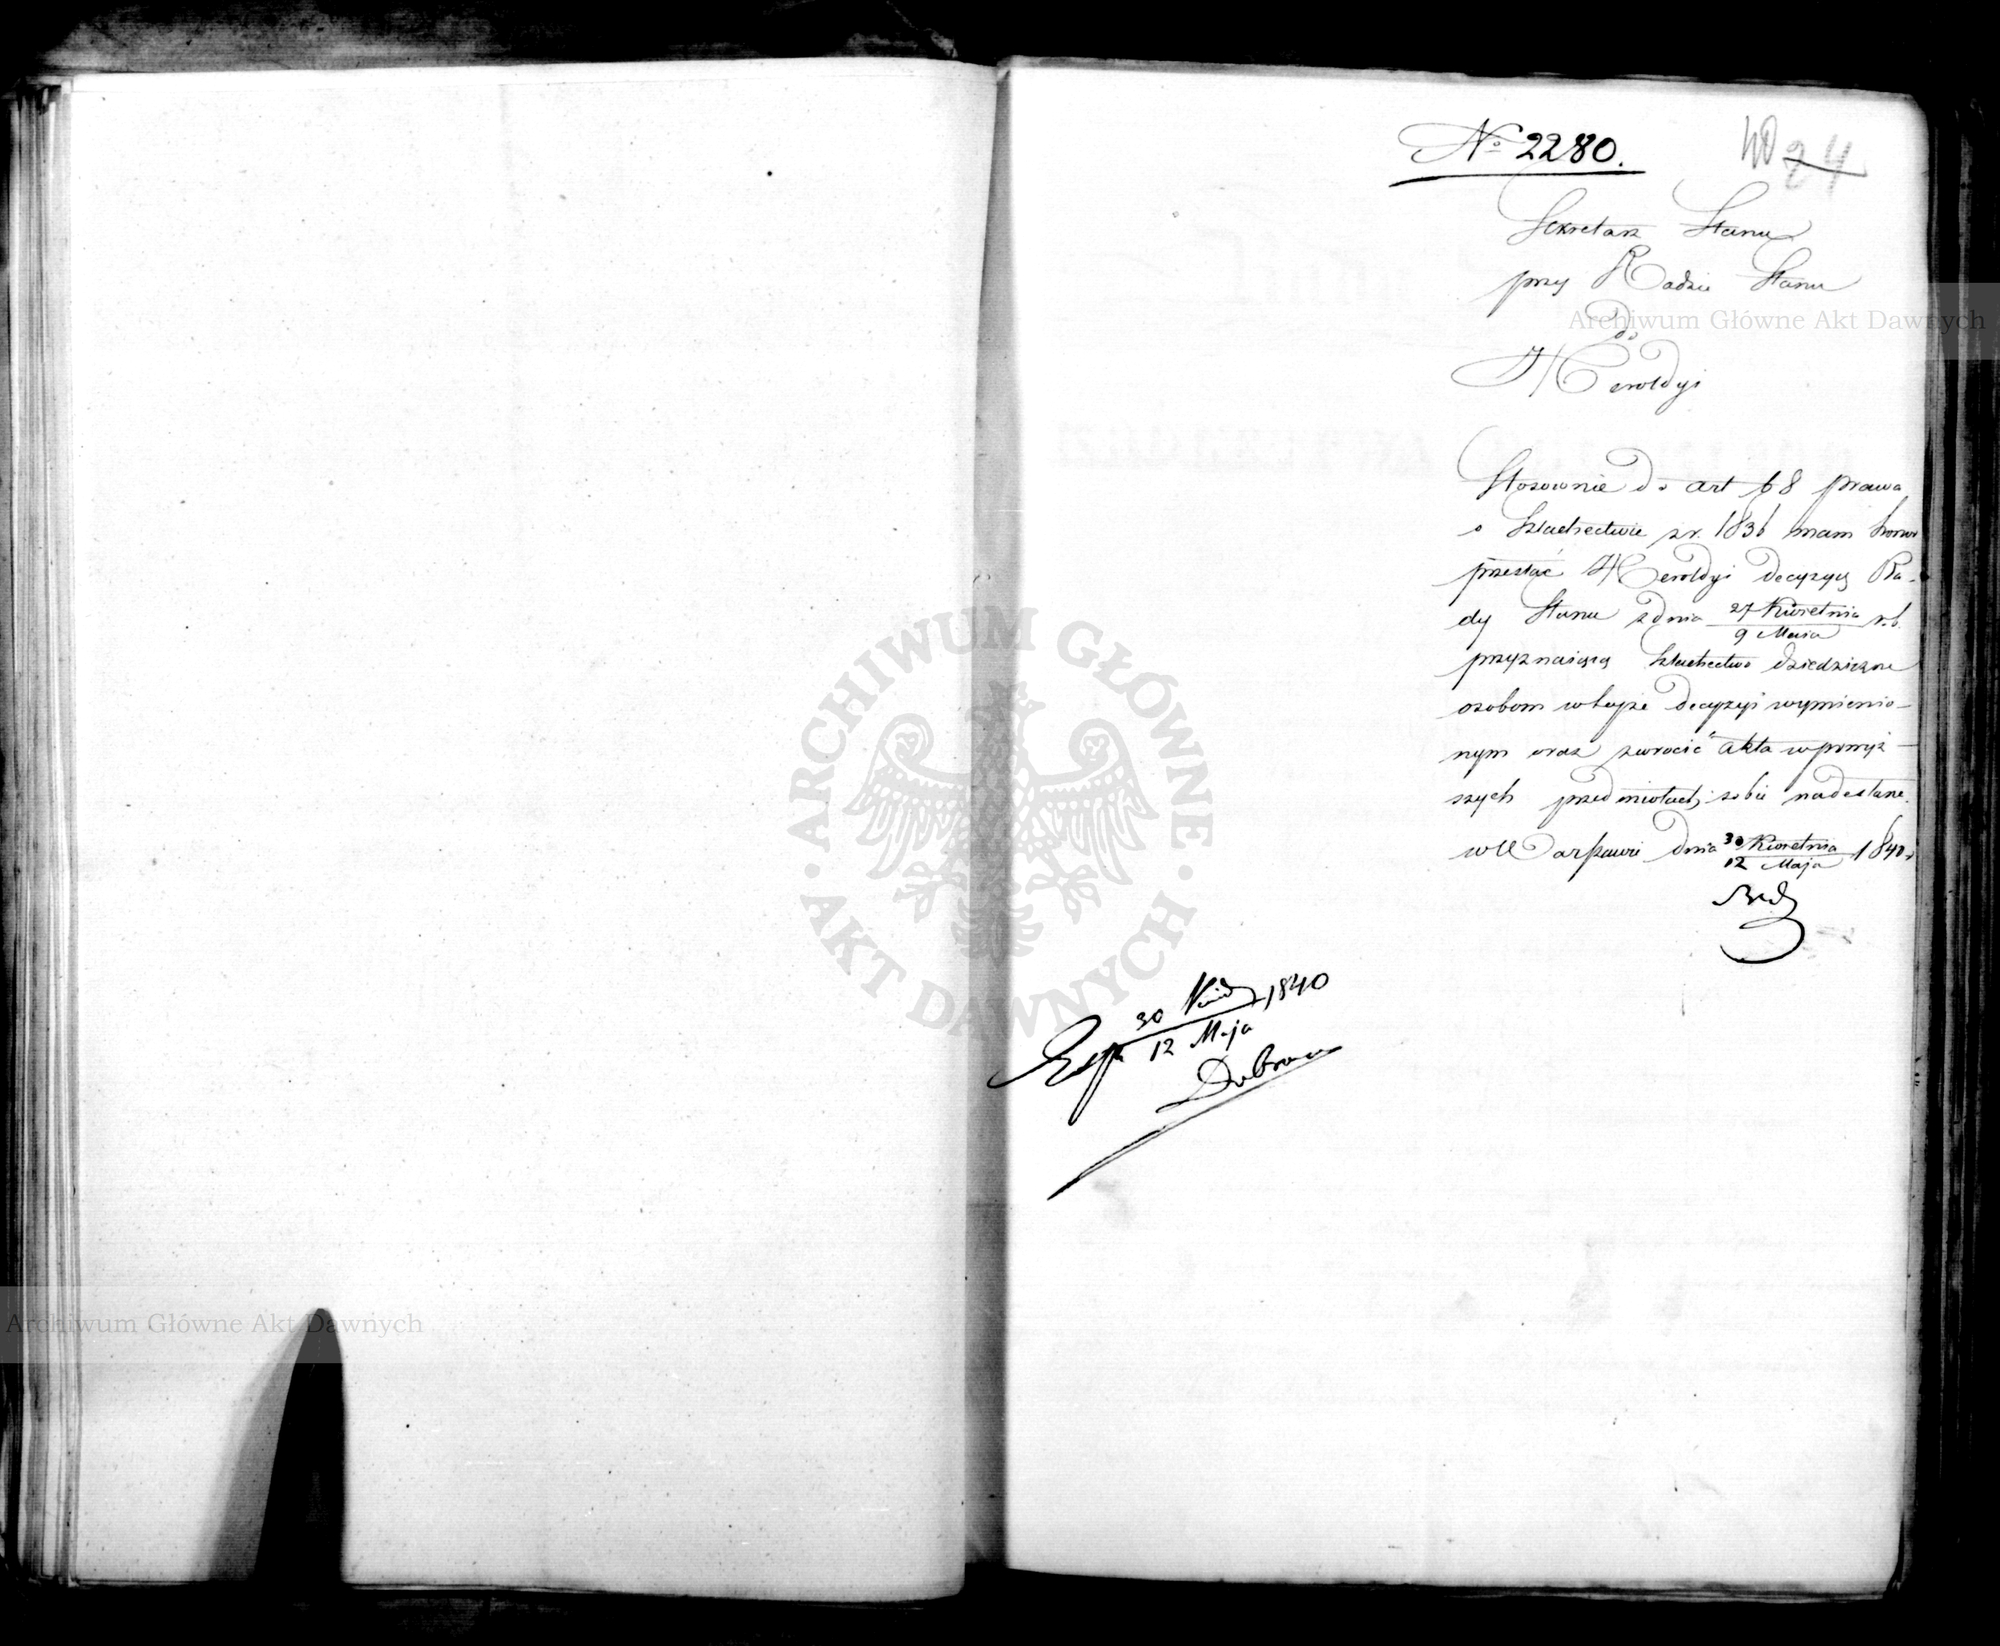 Nº 2280.
40 24
Sekretarz Stanu
przy Radzie Stanu
do
Heroldyi
Stosownie do art 68 prawa
o szlachectwie z r. 1836 mam honor
przesłać Heroldyi decyzyą Ra-
dy Stanu z dnia 27 Kwietnia / 9 Maia r. b.
przyznaiącą szlachectwo dziedziczne
osobom w teyże decyzyi wymienio-
nym oraz zwrocić akta w powyż-
szych przedmiotach sobie nadesłane.
w Warszawie dnia 30 Kwietnia / 12 Maja 1840 r.
30 / 12 Maja 1840
Archiwum Główne Akt Dawnych
ARCHIWUM GŁÓWNE · AKT DAWNYCH ·
Archiwum Główne Akt Dawnych